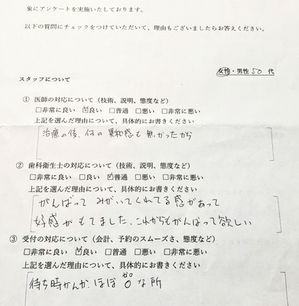 象にアンケートを実施いたしております。
以下の質問にチェックをつけていただいて、理由もございましたらお答えください。
女性・男性 50 代
スタッフについて
① 医師の対応について（技術、説明、態度など）
□非常に良い ☑良い □普通 □悪い □非常に悪い
上記を選んだ理由について、具体的にお書きください
治療の後、何の異和感も無かったから
② 歯科衛生士の対応について（技術、説明、態度など）
□非常に良い ☑良い □普通 □悪い □非常に悪い
上記を選んだ理由について、具体的にお書きください
がんばって みがいてくれてる感があって
好感がもてました、これからもがんばって欲しい
③ 受付の対応について（会計、予約のスムーズさ、態度など）
□非常に良い ☑良い □普通 □悪い □非常に悪い
上記を選んだ理由について、具体的にお書きください
待ち時かんがほぼ0な所